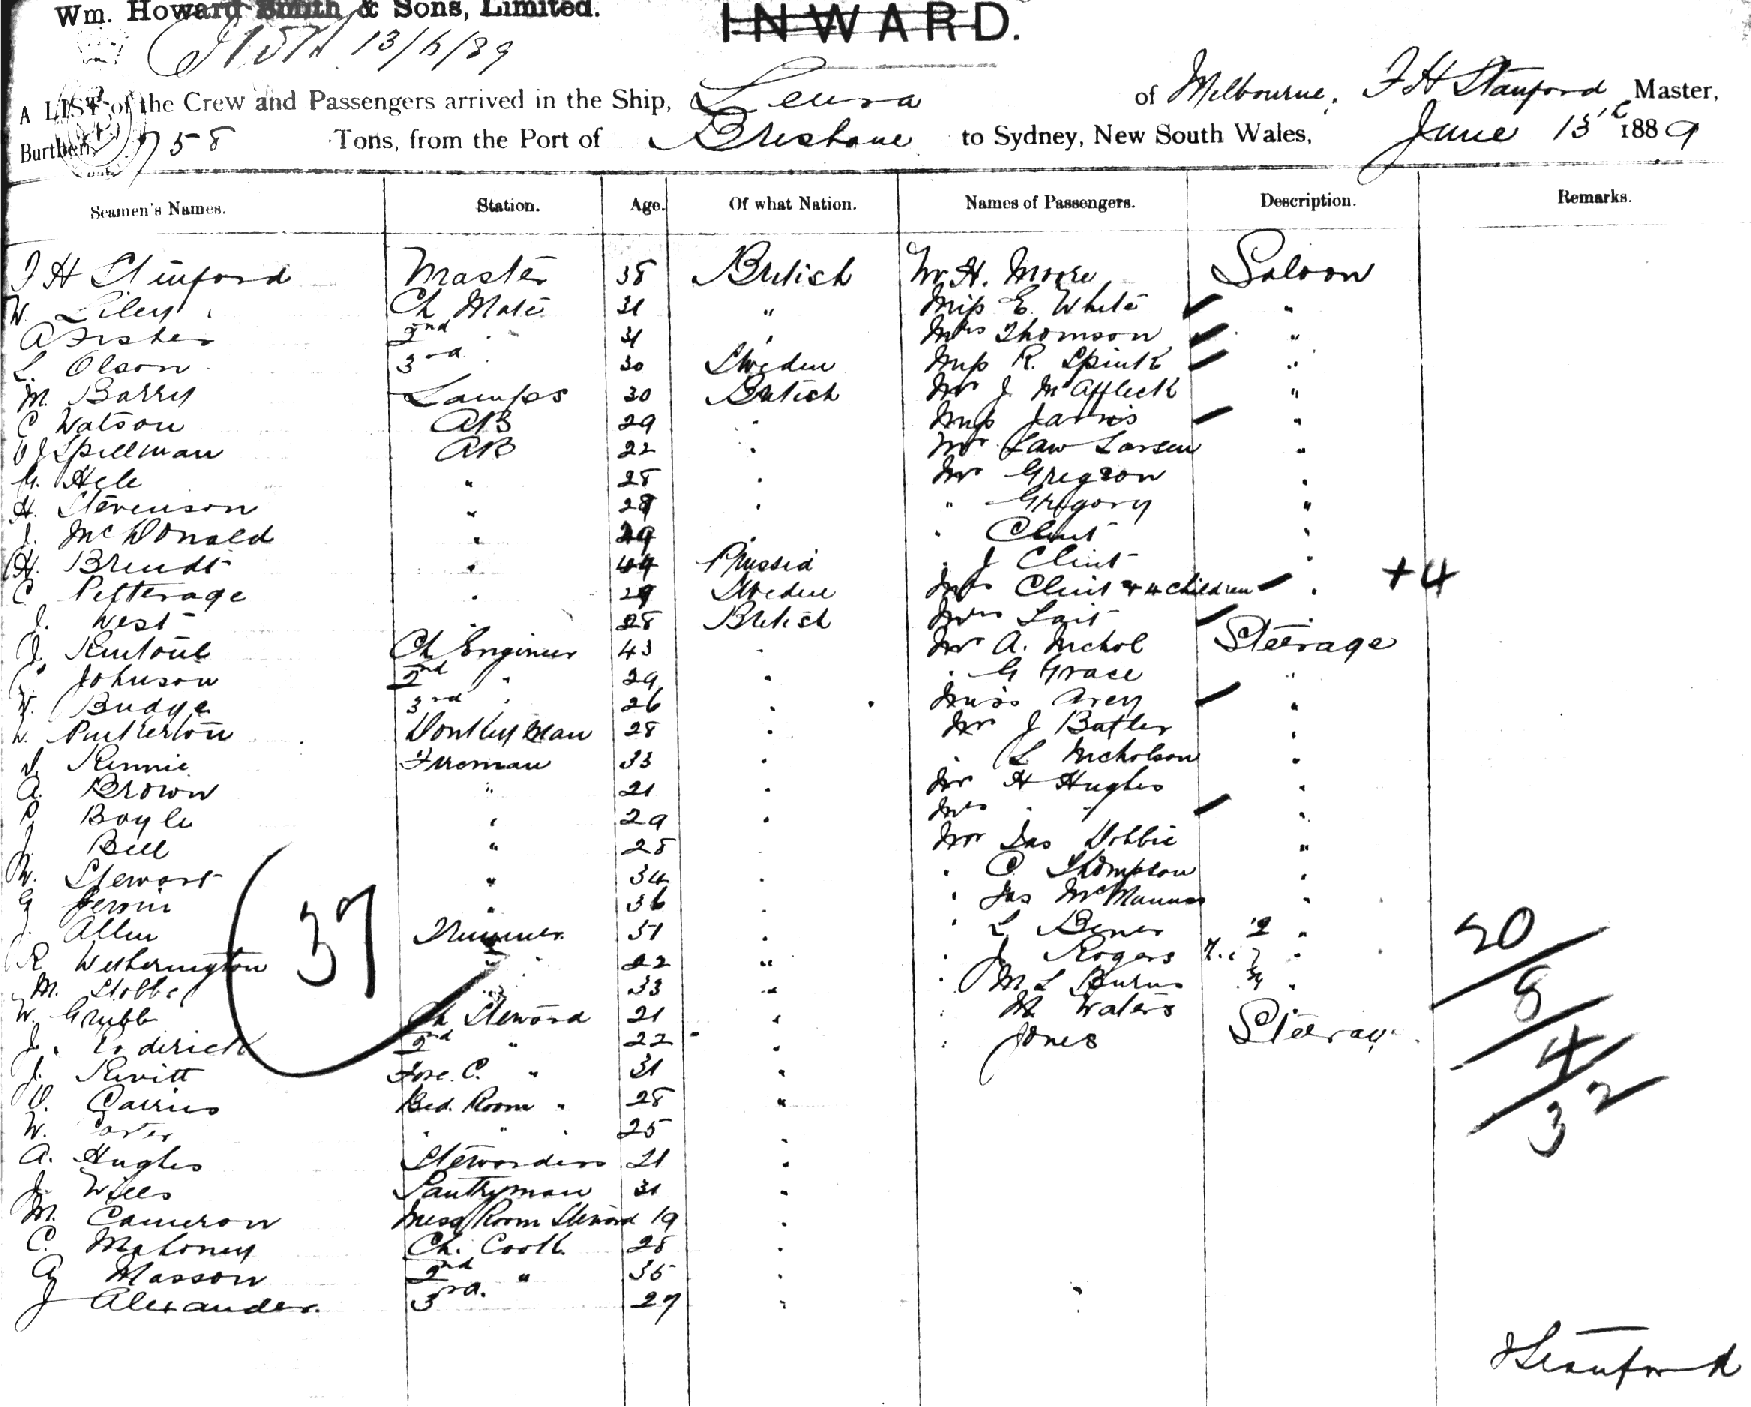 Wm. Howard Smith & Sons, Limited.
INWARD.
13/6/89
A LIST of the Crew and Passengers arrived in the Ship, Leura of Melbourne, F H Stanford Master,
Burthen 758 Tons, from the Port of Brisbane to Sydney, New South Wales, June 13th 1889
Seamen's Names. Station. Age. Of what Nation. Names of Passengers. Description. Remarks.
F H Stanford Master 38 British Mr H. Moore Saloon
W. Liley Ch Mate 31 " Miss E. White "
A Fisher 2nd " 31 " Mrs Thomson "
L. Olson 3rd " 30 Sweden Miss R. Spink "
M. Barry Lamps 30 British Mr J McAffleck "
C Watson AB 29 " Miss Jarvis "
Spillman AB 22 " Mr Law Larsen "
G. Hele " 28 " Mr Gregson "
H. Stevenson " 28 " " Gregory "
J. McDonald " 29 " " Clint "
H. Brendt " 44 Prussia " J Clint "
C Petterage " 29 Sweden Mrs Clint & 4 Children " +4
J. West " 28 British Mrs Lait "
J. Rintoul Ch Engineer 43 " Mr A. Nichol Steerage
Johnson 2nd " 29 " " G Grace "
W. Budge 3rd " 26 " Miss Grey "
W. Punkerton Donkeyman 28 " Mr J Butler "
J. Rennie Fireman 33 " " L Nicholson "
A. Brown " 21 " Mr H Hughes "
P Boyle " 29 " Mrs " " "
J Bell " 28 " Mr Jas Dobbie "
W. Stewart " 34 " " C. Thompson "
G Jervin " 36 " " Jas McManus "
J. Allen Trimmer 31 " " L Bener "
R Wetherington " 22 " " J Rogers "
M. Stobbe " 33 " " M L Burns "
W. Grubb Ch Steward 21 " " H Waters
J. 2nd " 22 " " Jones Steerage
J. Kevitt Fore C. " 31 "
Cairns Bed Room " 28 "
W. Carter " " " 25
A. Hughes Stewardess 21 "
J. Wills Pantryman 31 "
M. Cameron Mess Room Steward 19 "
C. Mahoney Ch. Cook 28 "
G Masson 2nd " 35 "
J Alexander 3rd. 27 "
37
20
8
4
32
Stanford